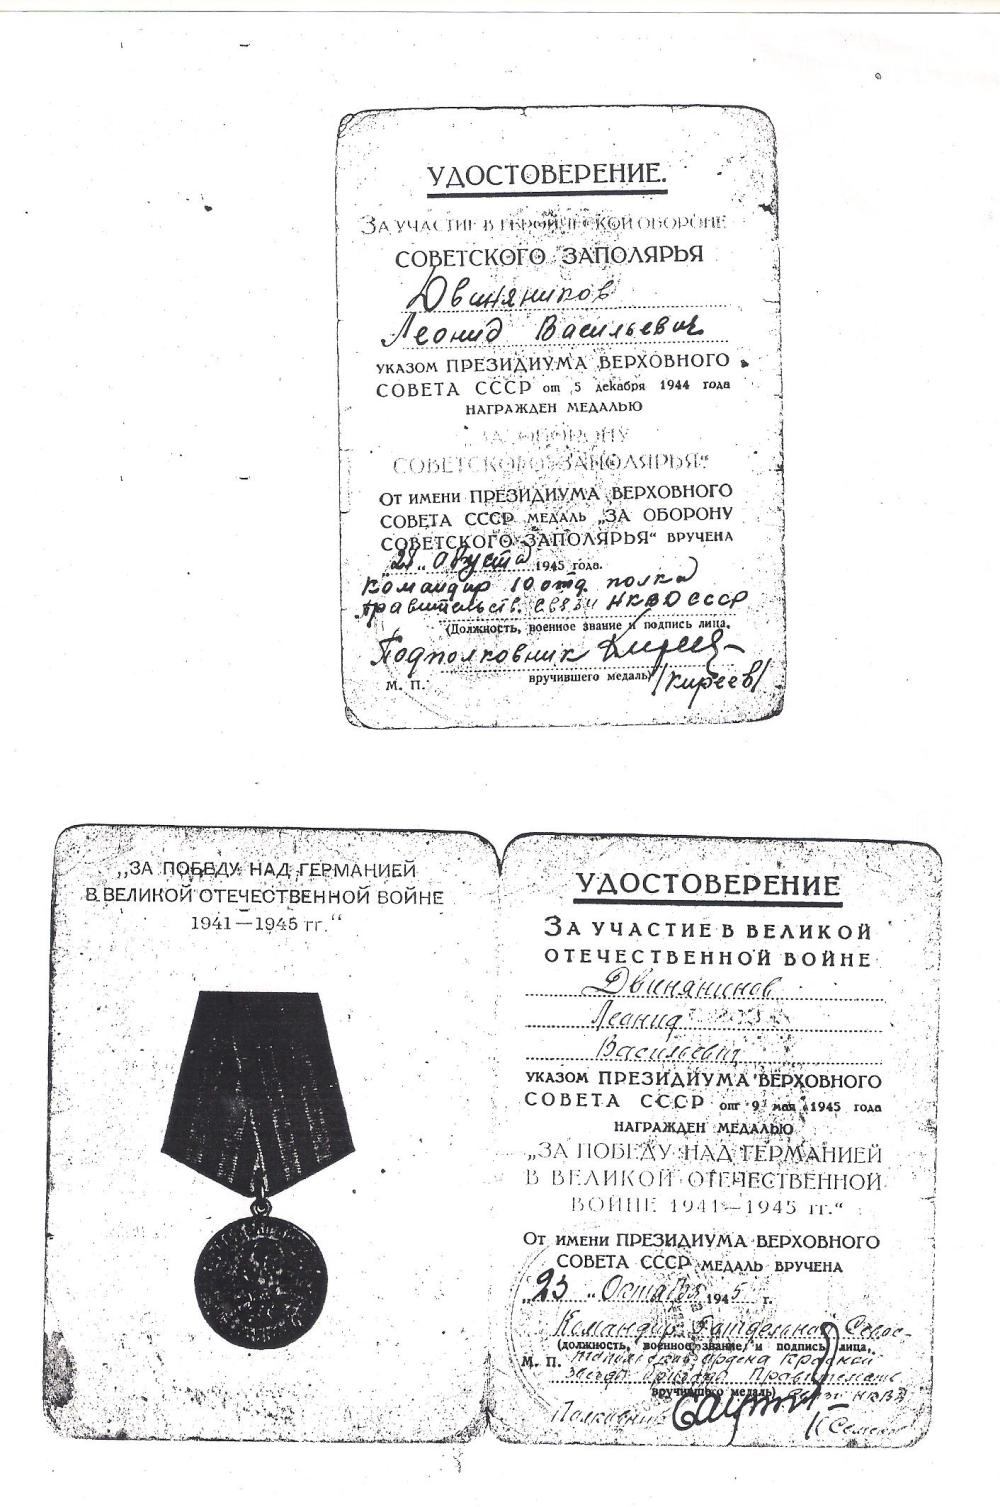 УДОСТОВЕРЕНИЕ.
ЗА УЧАСТИЕ В ГЕРОИЧЕСКОЙ ОБОРОНЕ
СОВЕТСКОГО ЗАПОЛЯРЬЯ
Двиняников
Леонид Васильевич
УКАЗОМ ПРЕЗИДИУМА ВЕРХОВНОГО
СОВЕТА СССР от 5 декабря 1944 года
НАГРАЖДЕН МЕДАЛЬЮ
„ЗА ОБОРОНУ
СОВЕТСКОГО ЗАПОЛЯРЬЯ“
ОТ ИМЕНИ ПРЕЗИДИУМА ВЕРХОВНОГО
СОВЕТА СССР МЕДАЛЬ „ЗА ОБОРОНУ
СОВЕТСКОГО ЗАПОЛЯРЬЯ“ ВРУЧЕНА
августа 1945 года.
Командир 10 отд. полка
правительств. связи НКВД СССР
(Должность, военное звание и подпись лица,
Подполковник
вручившего медаль) /Киреев/
М. П.
„ЗА ПОБЕДУ НАД ГЕРМАНИЕЙ
В ВЕЛИКОЙ ОТЕЧЕСТВЕННОЙ ВОЙНЕ
1941—1945 гг.“
УДОСТОВЕРЕНИЕ
ЗА УЧАСТИЕ В ВЕЛИКОЙ
ОТЕЧЕСТВЕННОЙ ВОЙНЕ
Двинянинов
Леонид
Васильевич
УКАЗОМ ПРЕЗИДИУМА ВЕРХОВНОГО
СОВЕТА СССР от 9 мая 1945 года
НАГРАЖДЕН МЕДАЛЬЮ
„ЗА ПОБЕДУ НАД ГЕРМАНИЕЙ
В ВЕЛИКОЙ ОТЕЧЕСТВЕННОЙ
ВОЙНЕ 1941—1945 гг.“
ОТ ИМЕНИ ПРЕЗИДИУМА ВЕРХОВНОГО
СОВЕТА СССР МЕДАЛЬ ВРУЧЕНА
„23“ Октября 1945 г.
Командир 7 отдельной Севас-
(должность, военное звание и подпись лица,
М. П. топольской ордена Красной
Звезды бригады Правительств
вручившего медаль) связи НКВД
Полковник